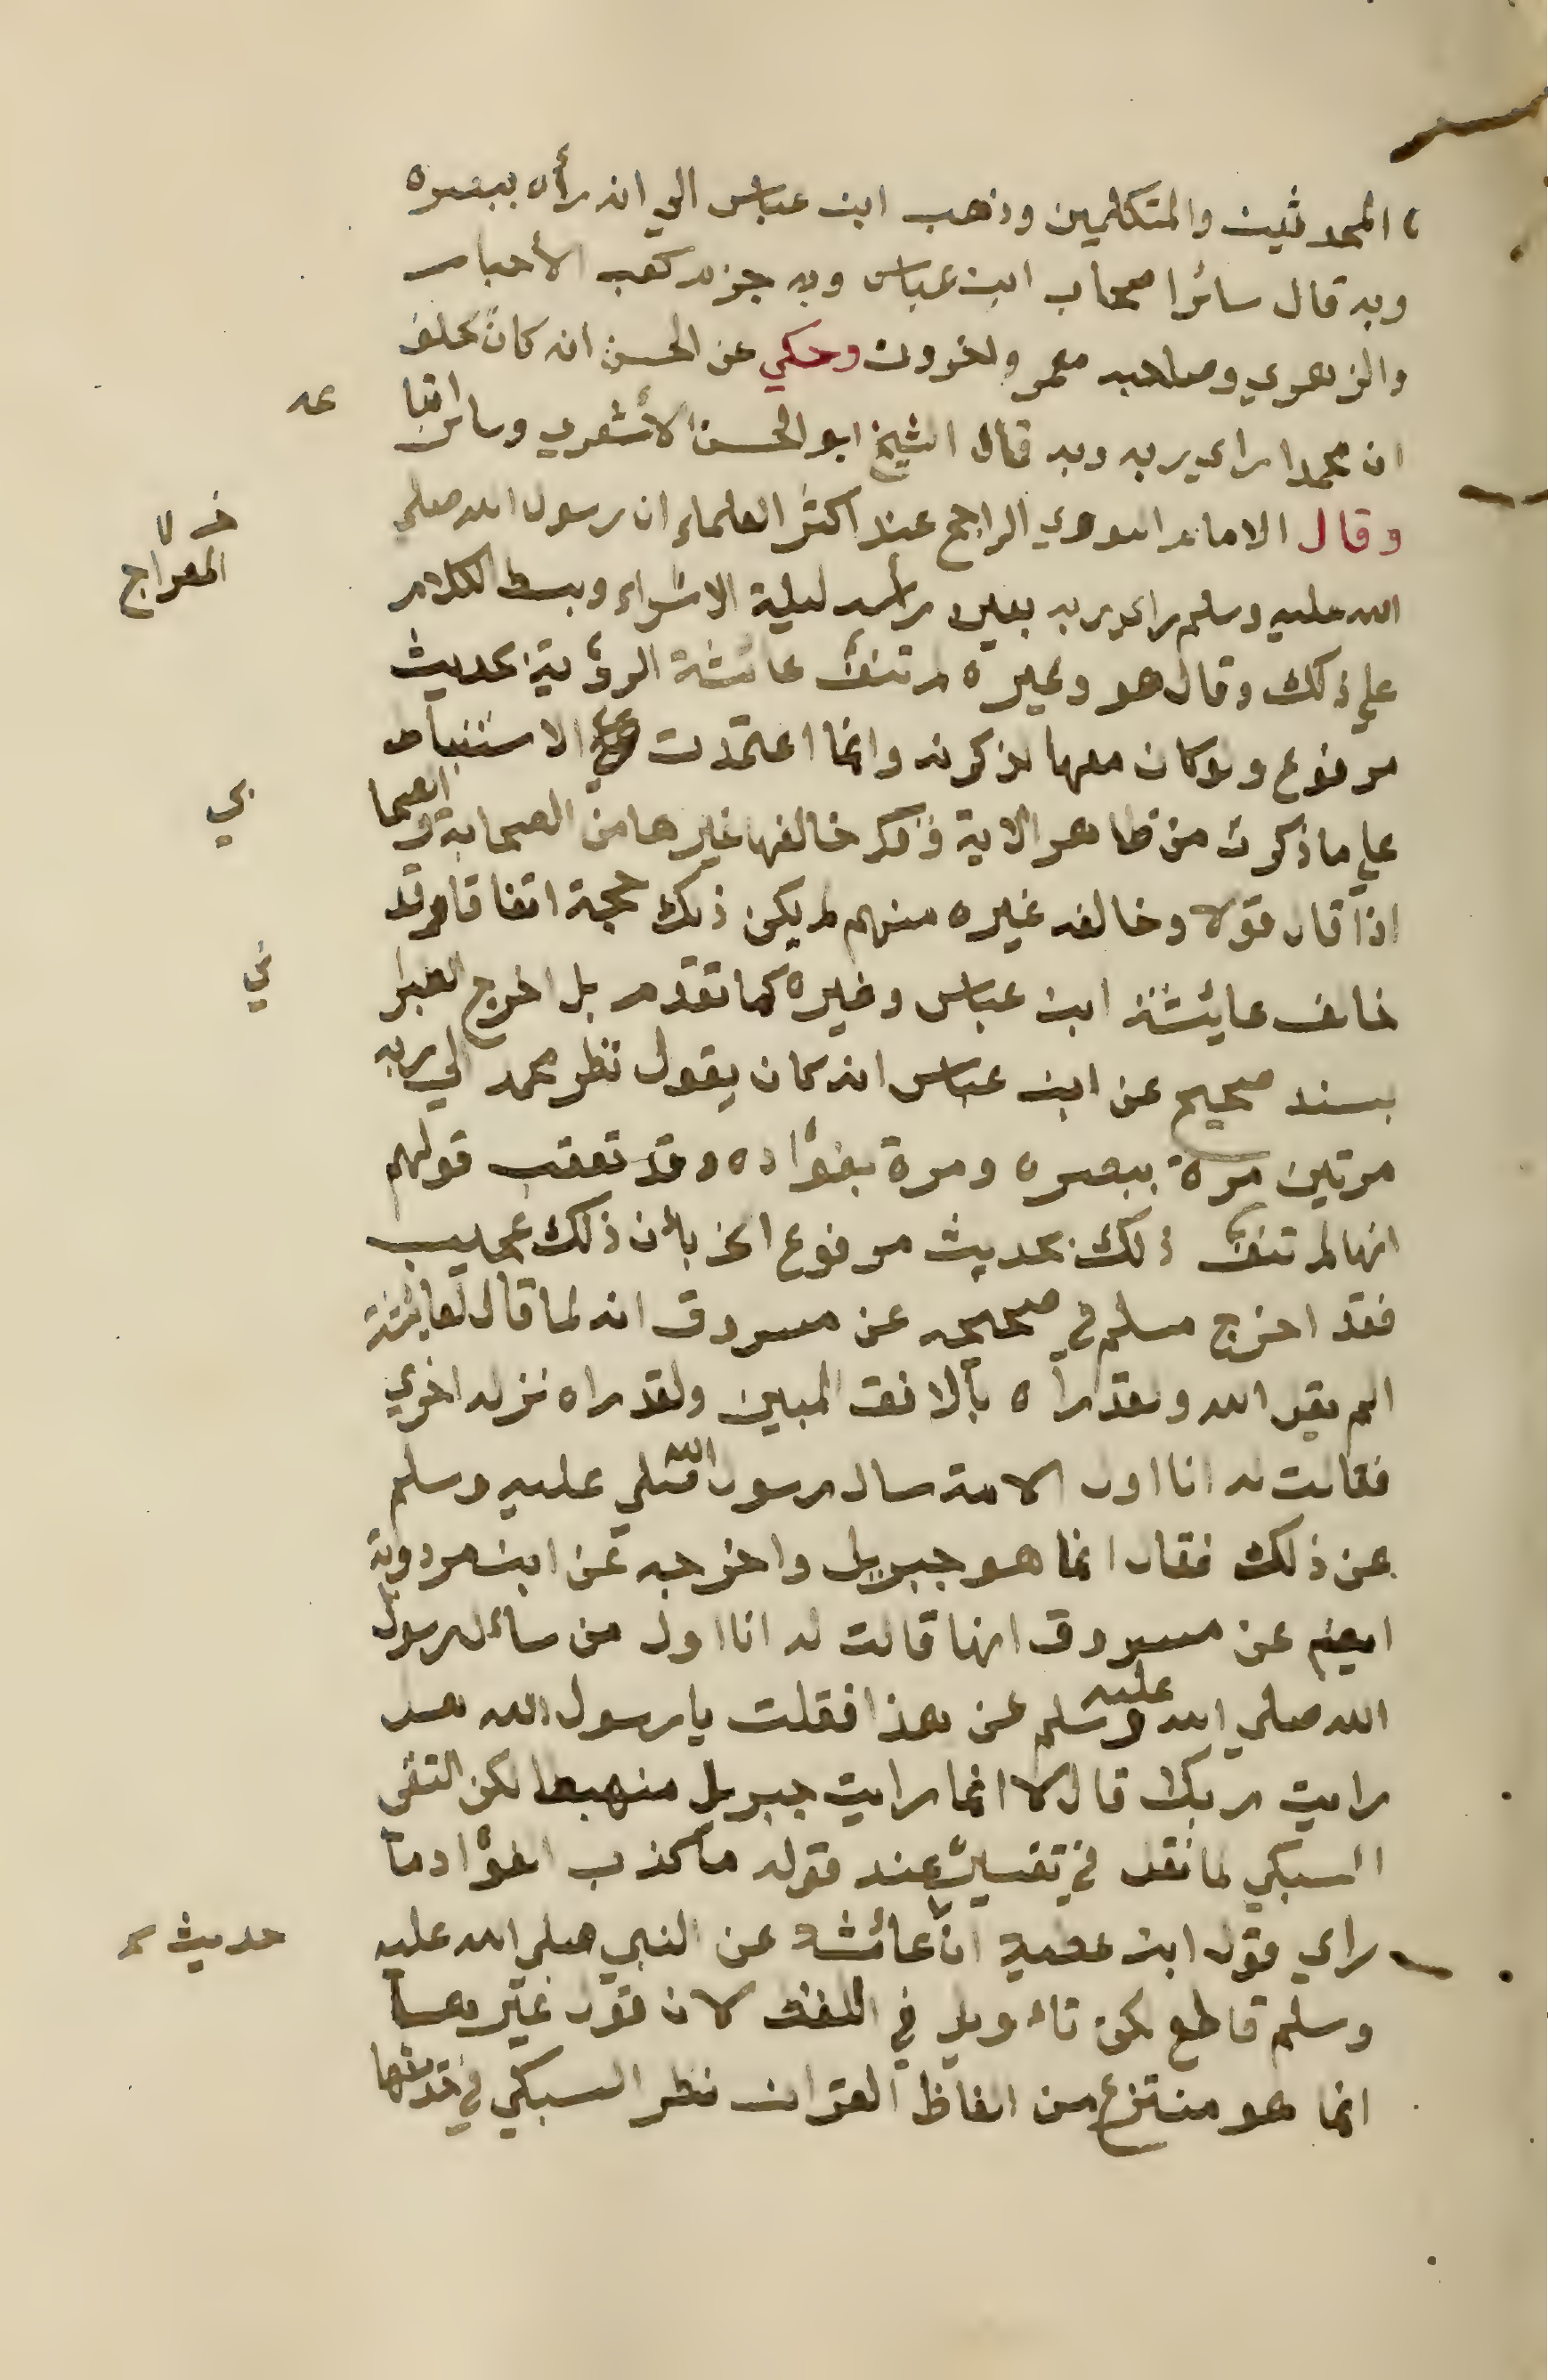 المحدثين والمتكلمين وذهب ابن عباس الي انه رأه ببصره
وبه قال سائر اصحاب ابن عباس وبه جزم كعب الأحبار
والزهري وصاحبه معمر واخرون وحكي عن الحسن انه كان يحلف
ان محمدا راي ربه وبه قال الشيخ ابو الحسن الأشعري وسائر اتبا
عه
وقال الامام النووي الراجح عند اكثر العلماء ان رسول الله صلي
الله عليه وسلم راي ربه بعين رأسه ليلة الاسراء وبسط الكلام
المعراج
علي ذلك وقال هو وغيره لم تنف عائشة الرؤية بحديث
مرفوع ولو كان معها لذكرته وانما اعتمدت علي الاستنباط
علي ما ذكرت من ظاهر الاية وقد خالفها غيرها من الصحابة والصحا
بي
اذا قال قولا وخالفه غيره منهم لم يكن ذلك حجة اتفاقا وقد
خالف عايشة ابن عباس وغيره كما تقدم بل اخرج الطبرا
ني
بسند صحيح عن ابن عباس انه كان يقول نظر محمد الي ربه
مرتين مرة ببصره ومرة بفؤاده وقد تعقب قولهم
انها لم تنف ذلك بحديث مرفوع الخ بأن ذلك عجيب
فقد اخرج مسلم في صحيحه عن مسروق انه لما قال لعايشة
الم يقل الله ولقد رأه بالافق المبين ولقد راه نزله اخري
فقالت له انا اول الامة سال رسول الله صلي عليه وسلم
عن ذلك فقال انما هو جبريل واخرجه عن ابن مردوية
ايضا عن مسروق انها قالت له انا اول من سأل رسول
الله صلي الله عليه وسلم عن هذا فقلت يا رسول الله هل
رايت ربك قال لا انما رايت جبريل منهبطا لكن التقي
السبكي لما نقل في تفسير عند قوله ما كذب الفؤاد ما
راي قول ابن عطية ان عائشة عن النبي صلي الله عليه
حديث
وسلم قاطع لكل تاويل في اللفظ لان قول غيرها
انما هو منتزع من الفاظ القران نظر السبكي في